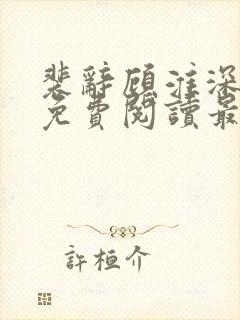 裴辭顧淮深
免費閱讀最
許桓介